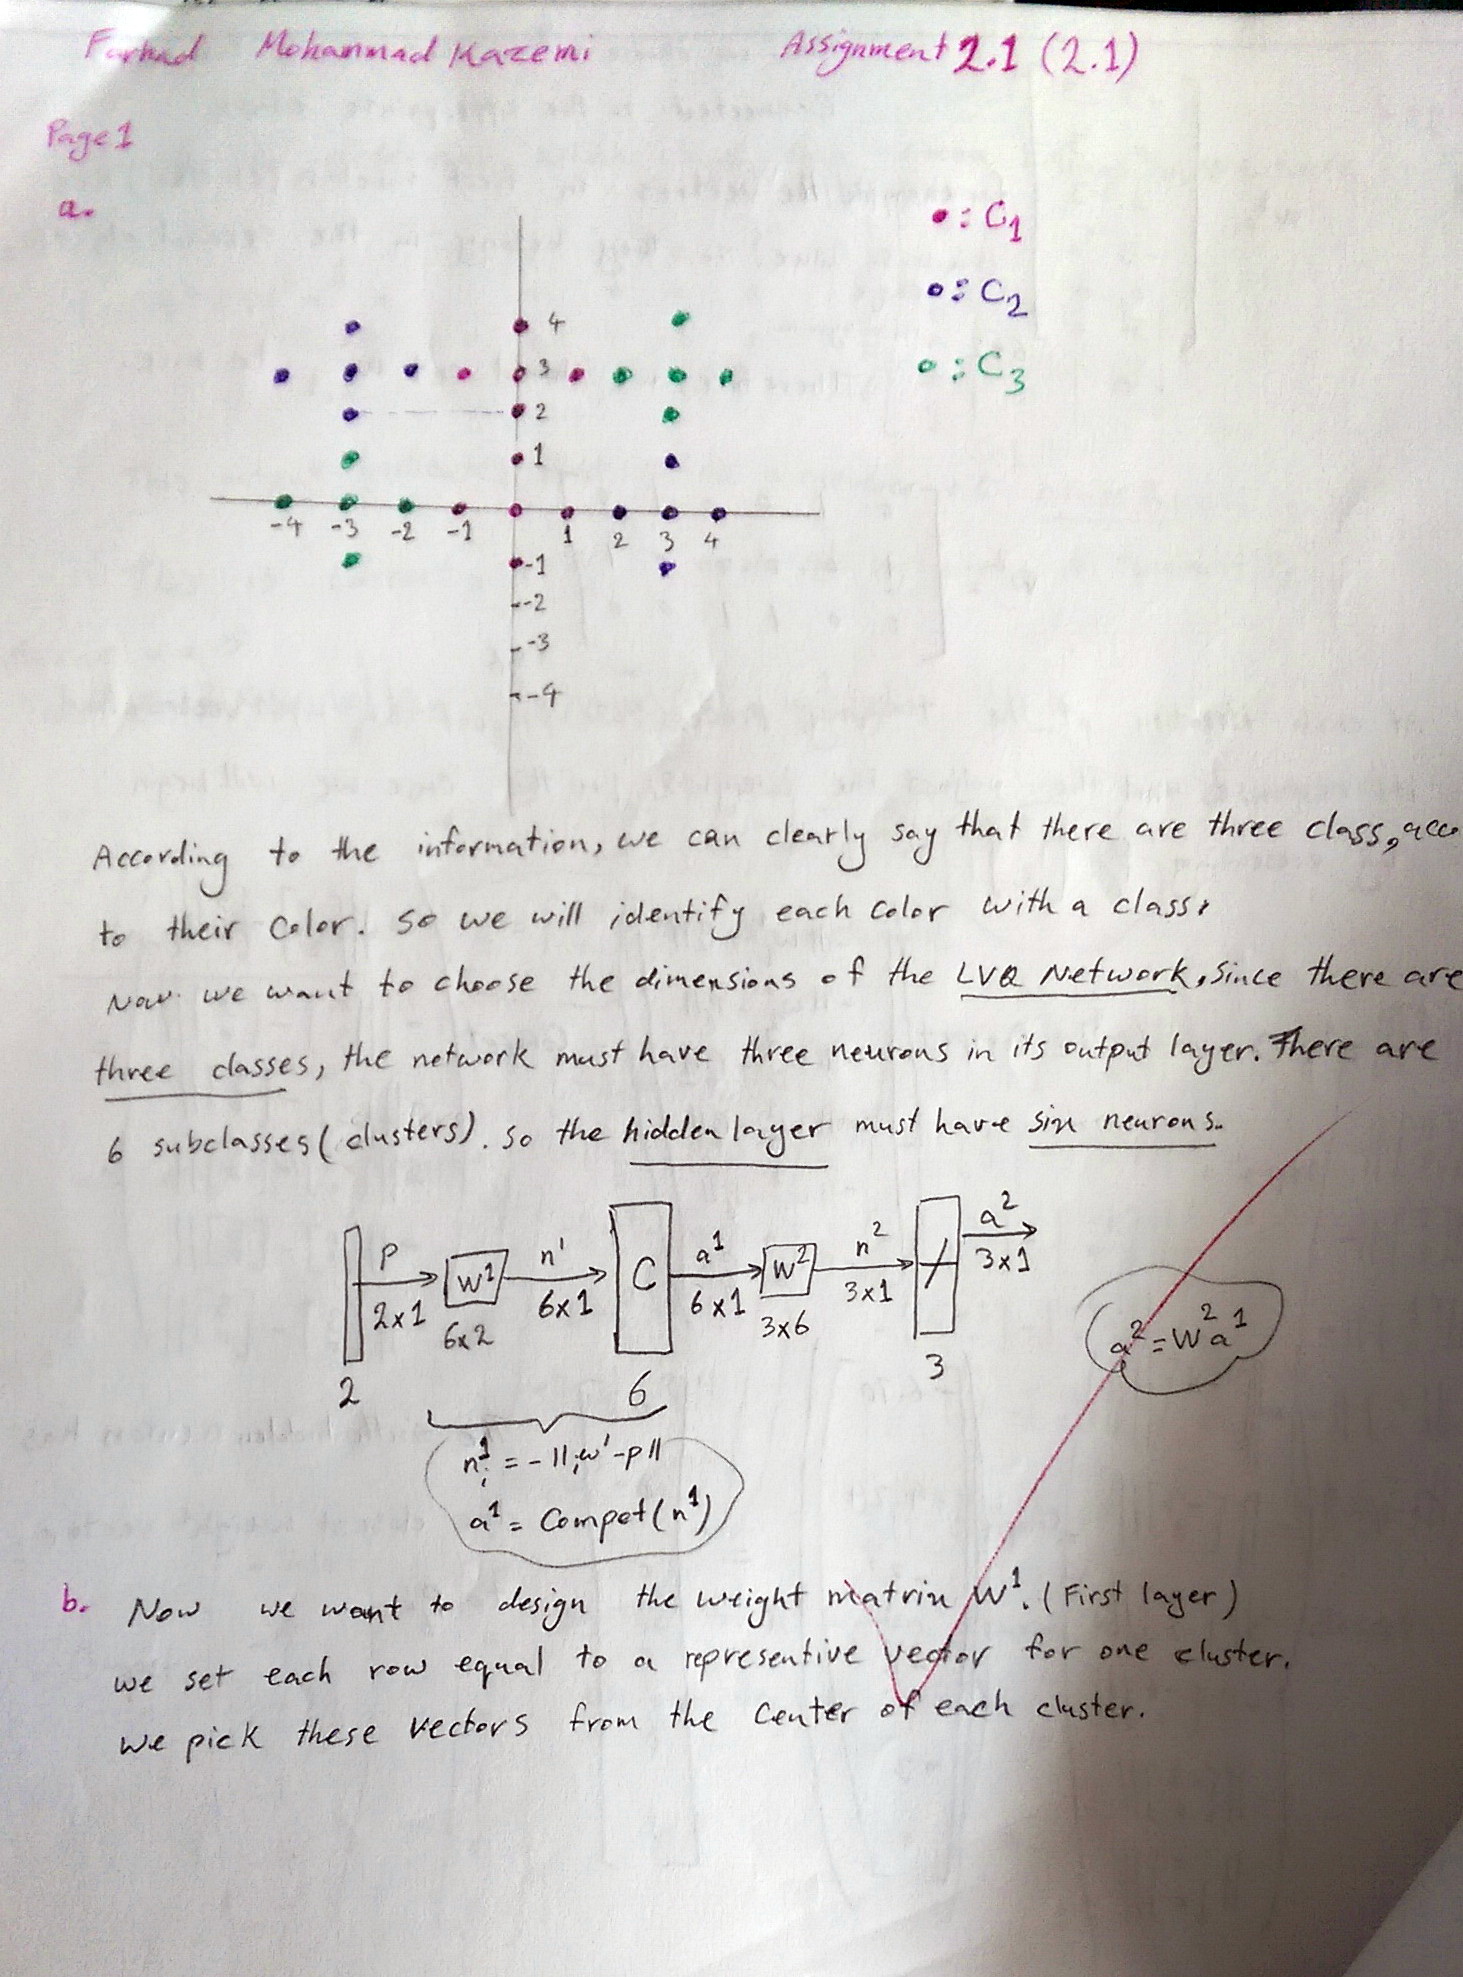 Farhad Mohammad Kazemi Assignment 2.1 (2.1)
Page 1
a.
• : C1
• : C2
• : C3
4
3
2
1
-4 -3 -2 -1 1 2 3 4
-1
-2
-3
-4
According to the information, we can clearly say that there are three class, acco
to their color. So we will identify each color with a class.
Now we want to choose the dimensions of the LVQ Network. Since there are
three classes, the network must have three neurons in its output layer. There are
6 subclasses (clusters). so the hidden layer must have six neurons.
P W¹ n¹ C a¹ W² n² a²
2x1 6x2 6x1 6x1 3x6 3x1 3x1
2 6 3
a² = W² a¹
n¹ᵢ = - ||ᵢw¹ - p||
a¹ = Compet(n¹)
b. Now we want to design the weight matrix W¹. (First layer)
we set each row equal to a representive vector for one cluster.
we pick these vectors from the center of each cluster.